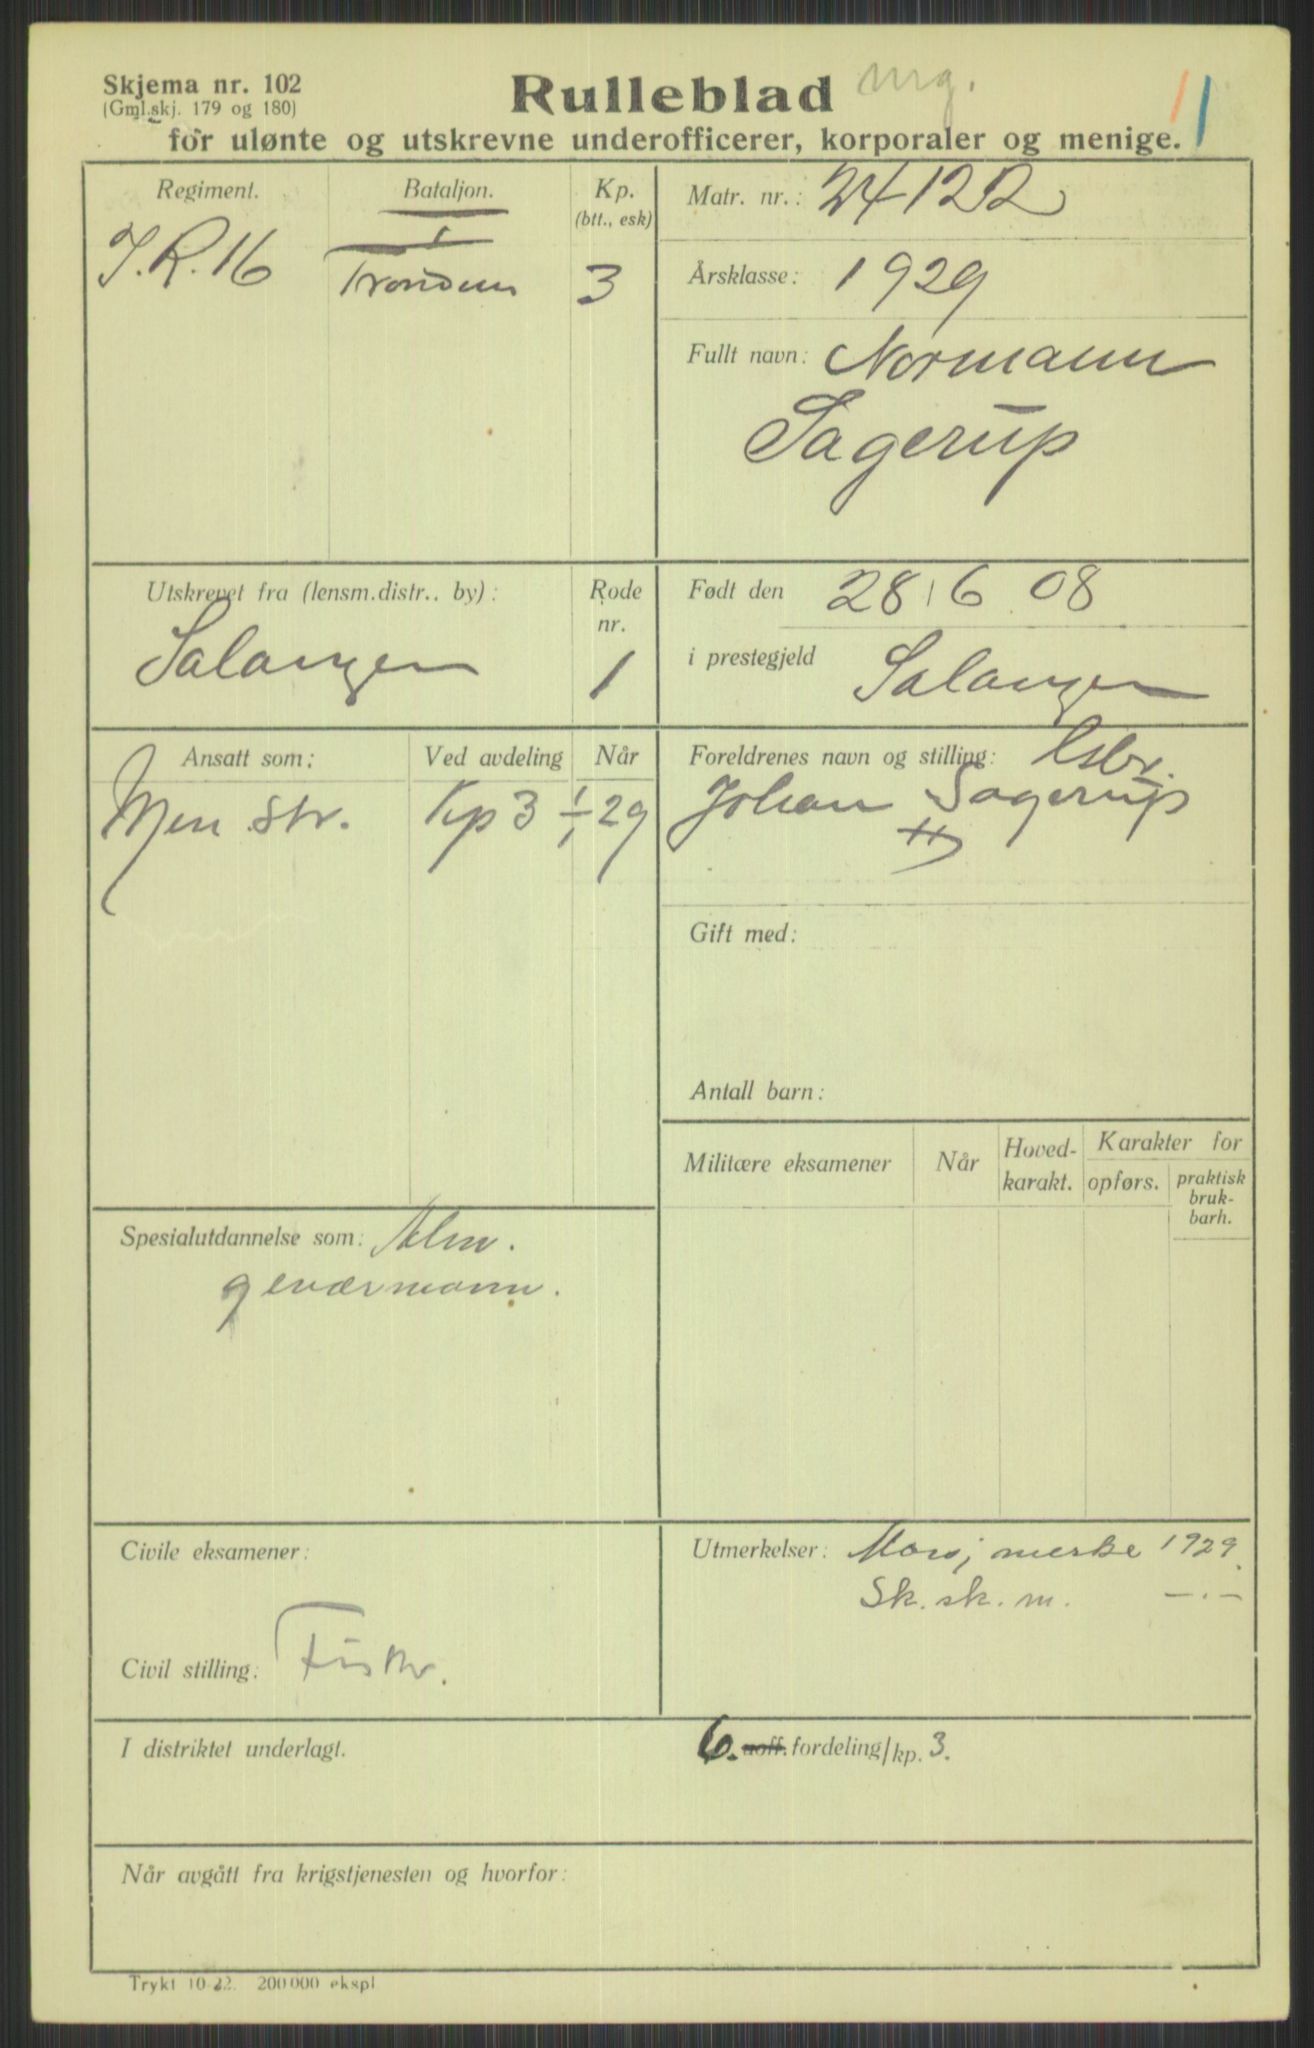 Skjema nr. 102
(Gml.skj. 179 og 180)
Rulleblad mg.
for ulønte og utskrevne underofficerer, korporaler og menige.
Regiment. Bataljon. Kp. (btt., esk)
I.R. 16 I 3
Matr. nr.: 24122
Årsklasse: 1929
Fullt navn: Normann
Sagerup
Utskrevet fra (lensm.distr.. by): Rode nr.
Salangen 1
Født den 28/6 08
i prestegjeld Salangen
Ansatt som: Ved avdeling Når
Men. str. Kp 3 1/1 29
Foreldrenes navn og stilling: Gsbr.
Johan Sagerup
Gift med:
Antall barn:
Militære eksamener Når Hoved-karakt. Karakter for
opførs. praktisk bruk-barh.
Spesialutdannelse som: Alm.
geværmann.
Civile eksamener:
Civil stilling: Fisker.
Utmerkelser: Marsjmerke 1929.
Sk. sk. m. —.—
I distriktet underlagt.
6. uoff. fordeling/kp. 3.
Når avgått fra krigstjenesten og hvorfor:
Trykt 10-22. 200 000 ekspl